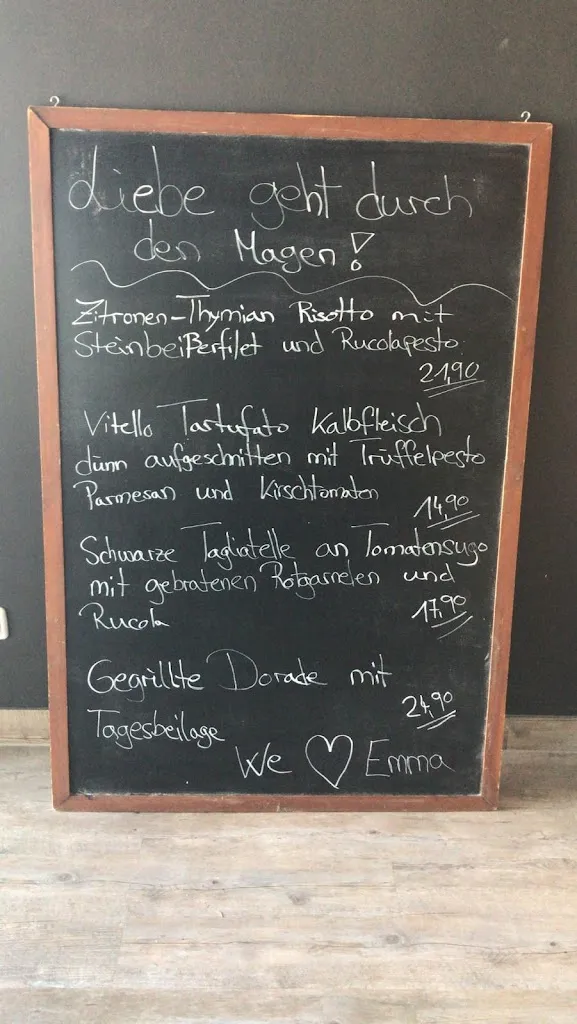 Liebe geht durch
den Magen!
Zitronen-Thymian Risotto mit
Steinbeißerfilet und Rucolapesto
21,90
Vitello Tartufato Kalbfleisch
dünn aufgeschnitten mit Trüffelpesto
Parmesan und Kirschtomaten
14,90
Schwarze Tagliatelle an Tomatensugo
mit gebratenen Rotgarnelen und
Rucola
17,90
Gegrillte Dorade mit
24,90
Tagesbeilage
We ♡ Emma